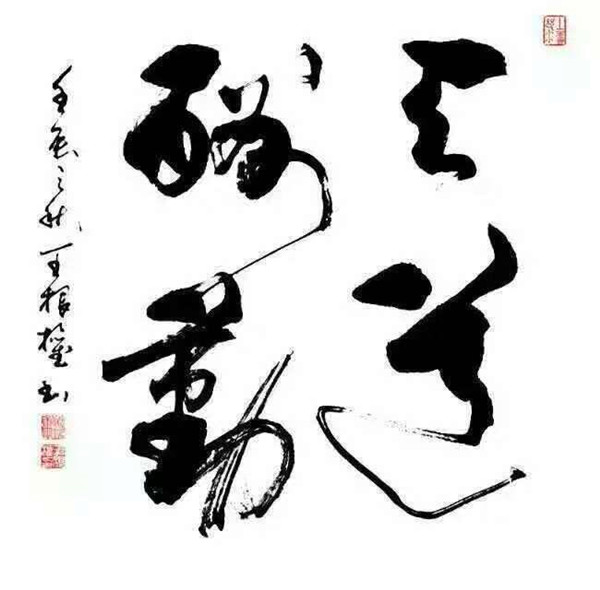 天道
酬勤
壬辰之秋王根权书